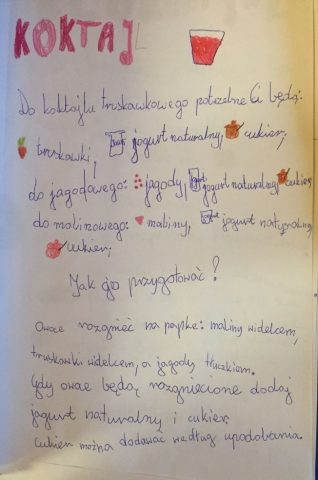 KOKTAJL
Do koktajlu truskawkowego potrzebne Ci będą:
truskawki, jogurt naturalny, cukier;
do jagodowego: jagody, jogurt naturalny, cukier;
do malinowego: maliny, jogurt naturalny,
cukier;
Jak go przygotować?
Owoce rozgnieć na papkę: maliny widelcem,
truskawki widelcem, a jagody tłuczkiem.
Gdy owoce będą rozgniecione dodaj
jogurt naturalny i cukier.
Cukier można dodawać według upodobania.